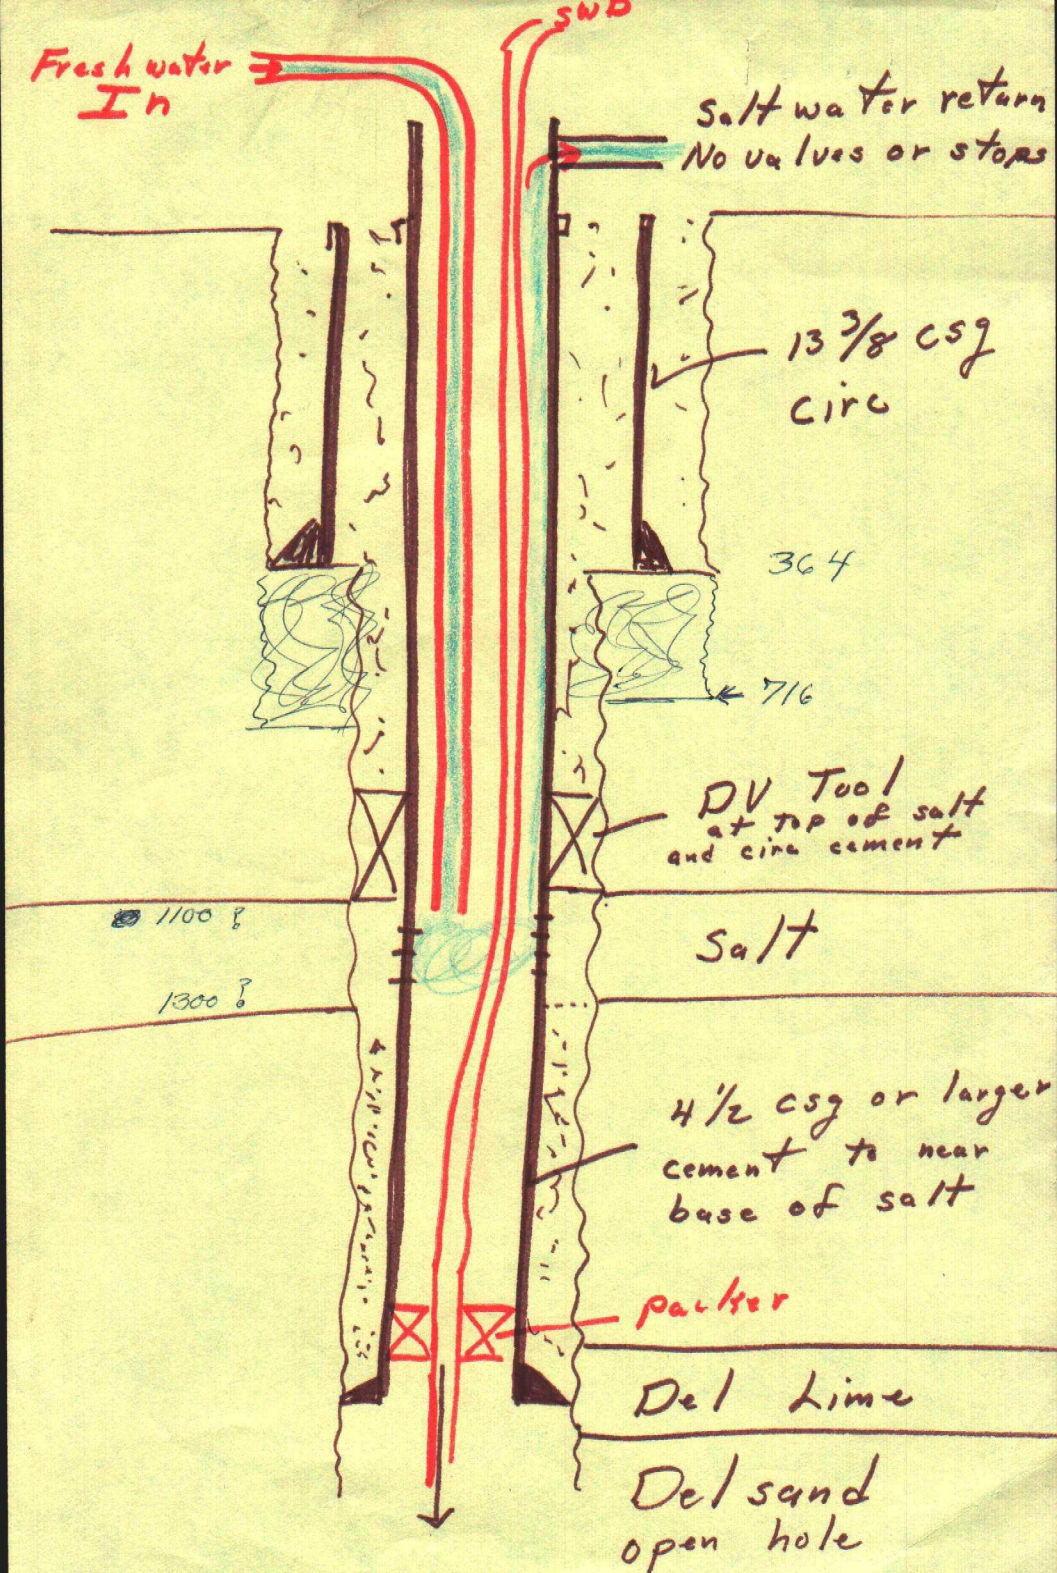 SWD
Fresh water
In
Salt water return
No valves or stops
13 3/8 csg
circ
364
716
DV Tool
at top of salt
and circ cement
1100 ?
Salt
1300 ?
4 1/2 csg or larger
cement to near
base of salt
packer
Del Lime
Del sand
open hole